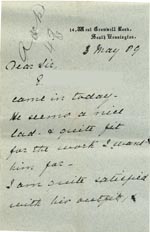 14, West Cromwell Road,
South Kensington.
3 May 09
Dear Sir,
E
came in today.
He seems a nice
lad. & quite fit
for the work I want
him for.
I am quite satisfied
with his outfit &